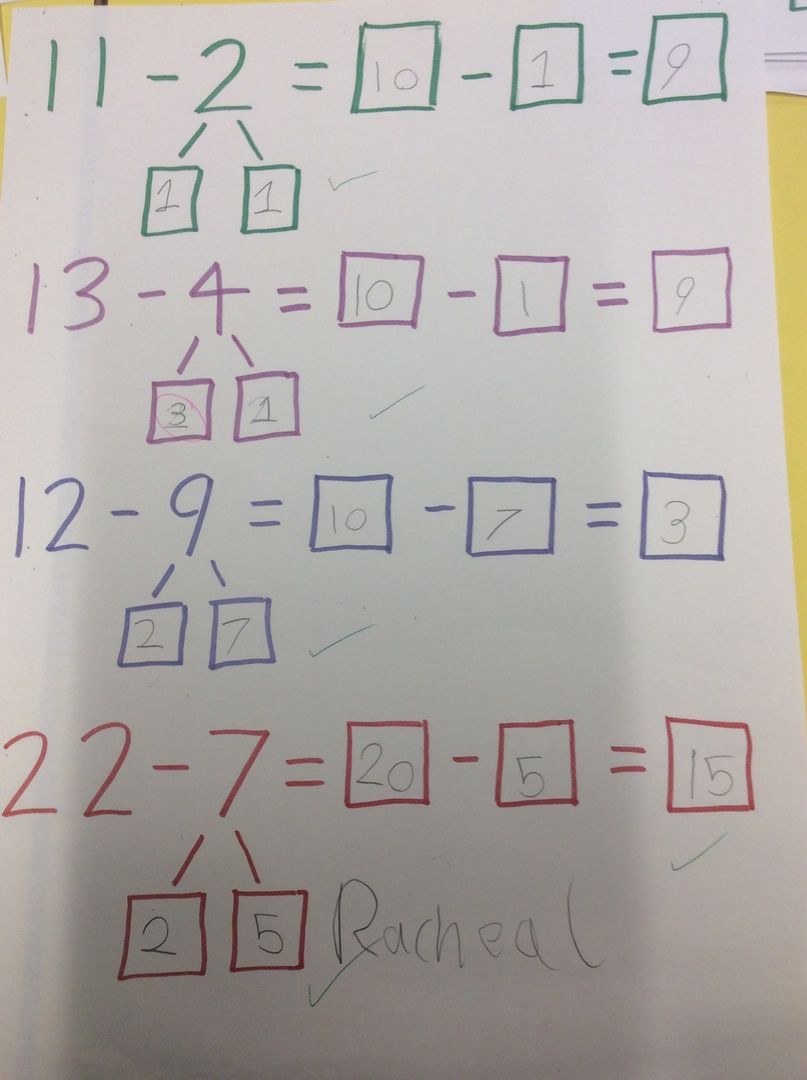 11 - 2 = 10 - 1 = 9
1 1
13 - 4 = 10 - 1 = 9
3 1
12 - 9 = 10 - 7 = 3
2 7
22 - 7 = 20 - 5 = 15
2 5 Racheal